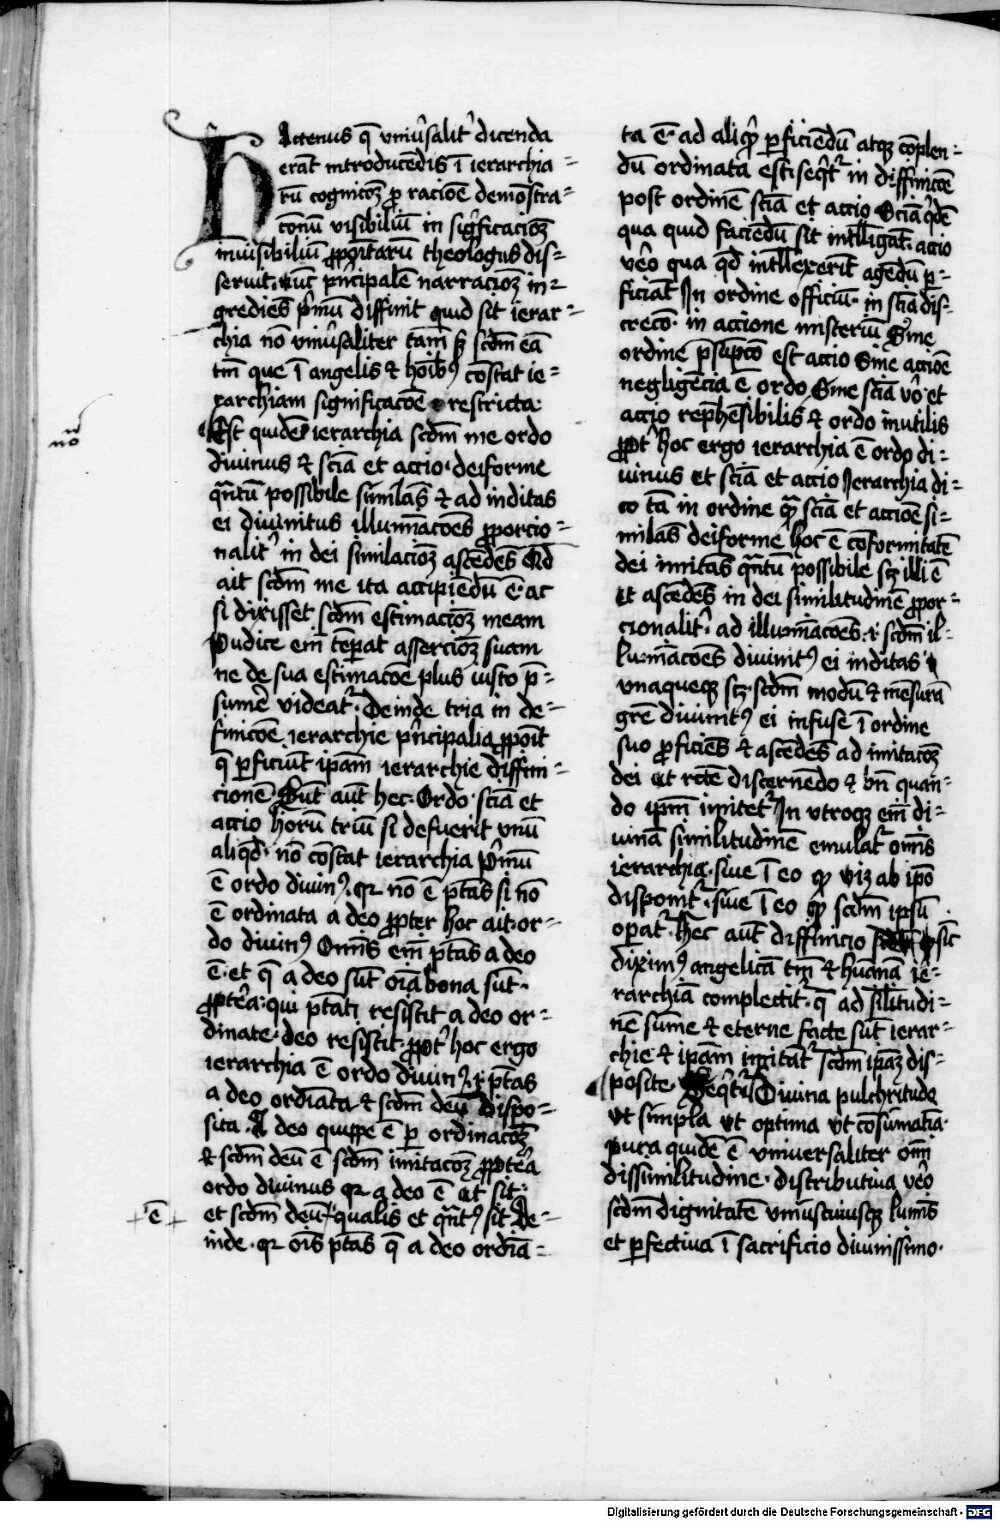 Hactenus q̄ vniu̅salit̾ dicenda
erāt introducēdis ī ierarchia=
rū cognicōꝫ ꝑ racioē demōstra=
cōnū visibiliū in sig̾ficacioꝫ
inuisibiliū ꝓpoītarū theologus dis=
seruit. nūc p̾ncipalē narracioꝫ in=
grediēs p̾mū diffinit quid sit ierar=
chia nō vniu̅saliter tam̄ sꝫ scd̄m eā
tm̄ que ī angelis ⁊ hoīb⁹ cōstat ie=
rarchiam significacōe restricta.
Est quidē ierarchia scd̄m me ordo
diuinus ⁊ sciā et actio deiforme
q̄ntū possibile similās ⁊ ad inditas
ei diuinitus illuīacōes ꝓporcio=
nalit̾ in dei similacioꝫ ascēdēs Qd̄
ait scd̄m me ita accipiēdū ē ac
si dixisset scd̄m estimacioꝫ meam
Pudice em̄ tēꝑat assercioꝫ suam
ne de sua estimacōe plus iusto p̄=
sumē videat̾. Deinde tria in de=
finicōe ierarchie p̾ncipalia ꝓpoīt
q̄ ꝑficiūt ip̄am ierarchie diffini=
cionē Sūt aūt hec. Ordo. sciā et
actio horū triū si defuerit vnū
aliqd̄. nō cōstat ierarchia P̾mū
ē ordo diuin⁹. qr nō ē p̄tās si nō
ē ordinata a deo ꝓpter hoc ait. or=
do diuin⁹ Omīs em̄ p̄tās a deo
ē. et q̄ a deo sūt oīa bona sūt.
ꝓpt̾ea. qui p̄tati resistit a deo or=
dinate. deo resistit. ꝓpt̾ hoc ergo
ierarchia ē ordo diuin⁹. i. p̄tās
a deo ordiata ⁊ scd̄m deū dispo=
sita. A deo quippe ē ꝑ ordinacōꝫ
⁊ scd̄m deū ē scd̄m imitacōꝫ ꝓpt̾ea
ordo diuinus qr a deo ē vt sit.
et scd̄m deū + qualis et q̄nt⁹ sit De=
+ ē +
inde. qr oīs p̄tās q̄ a deo ordia=
no
ta ē. ad aliq̄ꝫ ꝑficiēdū atqꝫ cōplen=
dū ordinata est. seq̄t̾ in diffinicōe
post ordinē sciā et actio Sciā q̾dē
qua quid faciēdū sit intlligat̾. actio
v̾o qua qd̄ intllexerīt agēdū ꝑ=
ficiat̾ In ordine officiū. in sciā dis=
crecō. in actione misteriū Sine
ordine p̄supcō est actio Sine actiōe
negligēcia ē ordo Sine sciā v̾o et
actio rep̄hēsibilis ⁊ ordo inutilis
ꝓpt̾ hoc ergo ierarchia ē ordo di=
uinus et sciā et actio Ierarchia di=
co tā in ordine q̄ꝫ sciā et actiōe si=
milās deiforme hoc ē cōformitatē
dei imitās q̄ntū possibile scꝫ illi ē
Et ascēdēs in dei similitudinē ꝓpor=
cionalit̾. ad illuīacōes. i. scd̄m il=
luīacōes diuinit⁹ ei inditas
vnaqueqꝫ scꝫ scd̄m modū ⁊ mēsurā
grē diuinit⁹ ei infuse ī ordine
suo ꝓficiēs ⁊ ascēdēs ad imitacōꝫ
dei vt rc̄te discernēdo ⁊ bn̄ quan=
do ip̄m imitet̾ In vtroqꝫ em̄ di=
uinā similitudinē emulat̾ om̄s
ierarchia. siue ī eo qꝫ viꝫ ab ip̄o
disponit̾. siue ī eo qꝫ scd̄m ipsū
oꝑat̾. Hec aūt diffinicio sic
dixim⁹ angelicā tm̄ ⁊ hu̅anā ie=
rarchiā complectit̾. q̄ ad sil̄itudi=
nē sūme ⁊ eterne facte sūt ierar=
chie ⁊ ip̄am imitāt̾ scd̄m ip̄aꝫ dis=
posite. Seq̄t̾ Diuina pulchritudo
vt simpla vt optima vt cōsumatīa.
pura quidē ē vniuersaliter om̄i
dissimilitudine. distributiua v̾o
scd̄m dignitatē vniuscuiusqꝫ lumīs
et ꝑfectiua ī sacrificio diuinissimo.
Digitalisierung gefördert durch die Deutsche Forschungsgemeinschaft - DFG